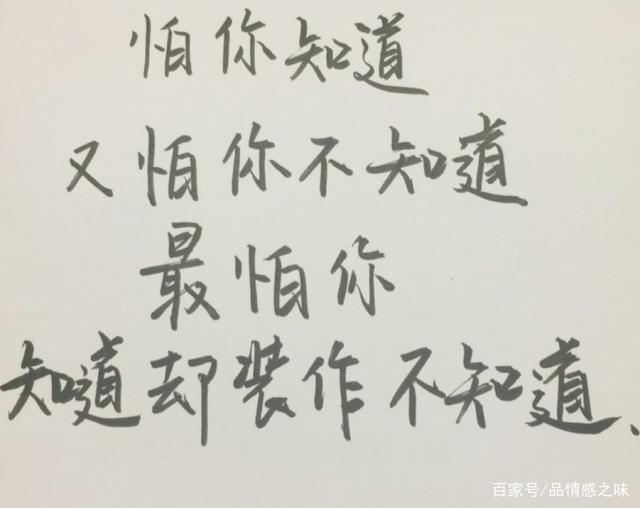 怕你知道
又怕你不知道
最怕你
知道却装作不知道、
百家号/品情感之味